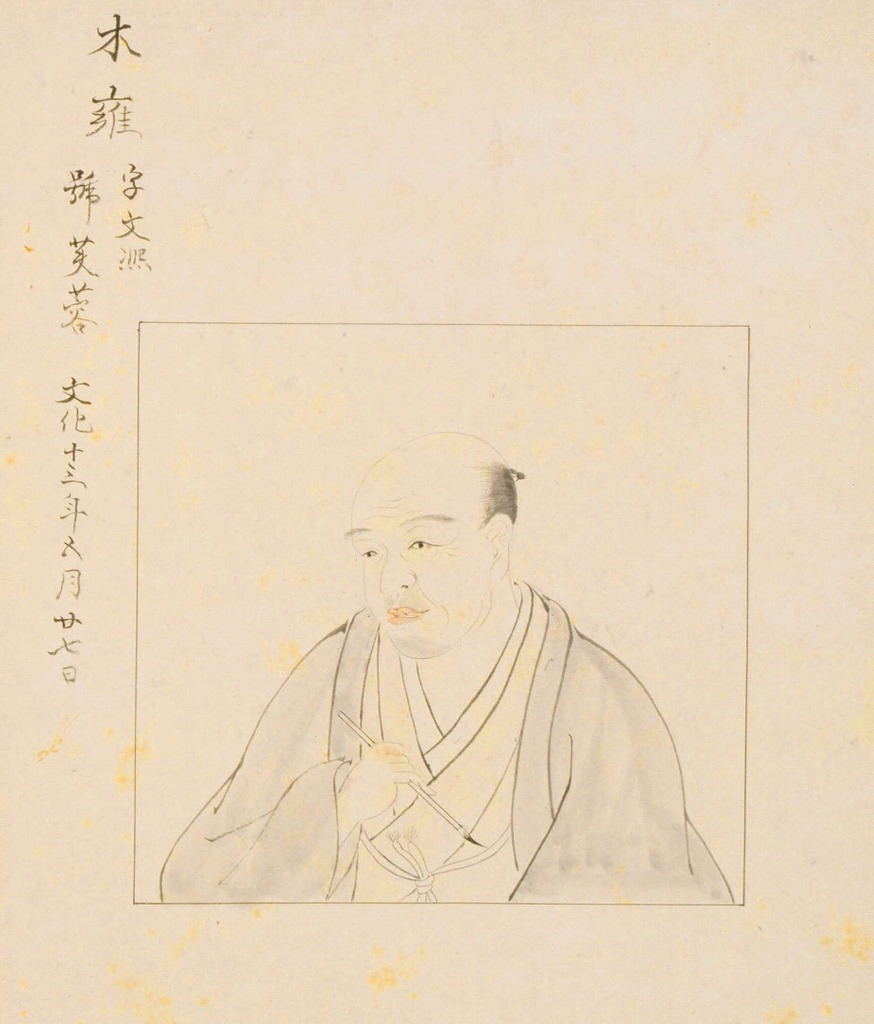 木雍
字文熈
號芙蓉 文化十三年五月廿七日